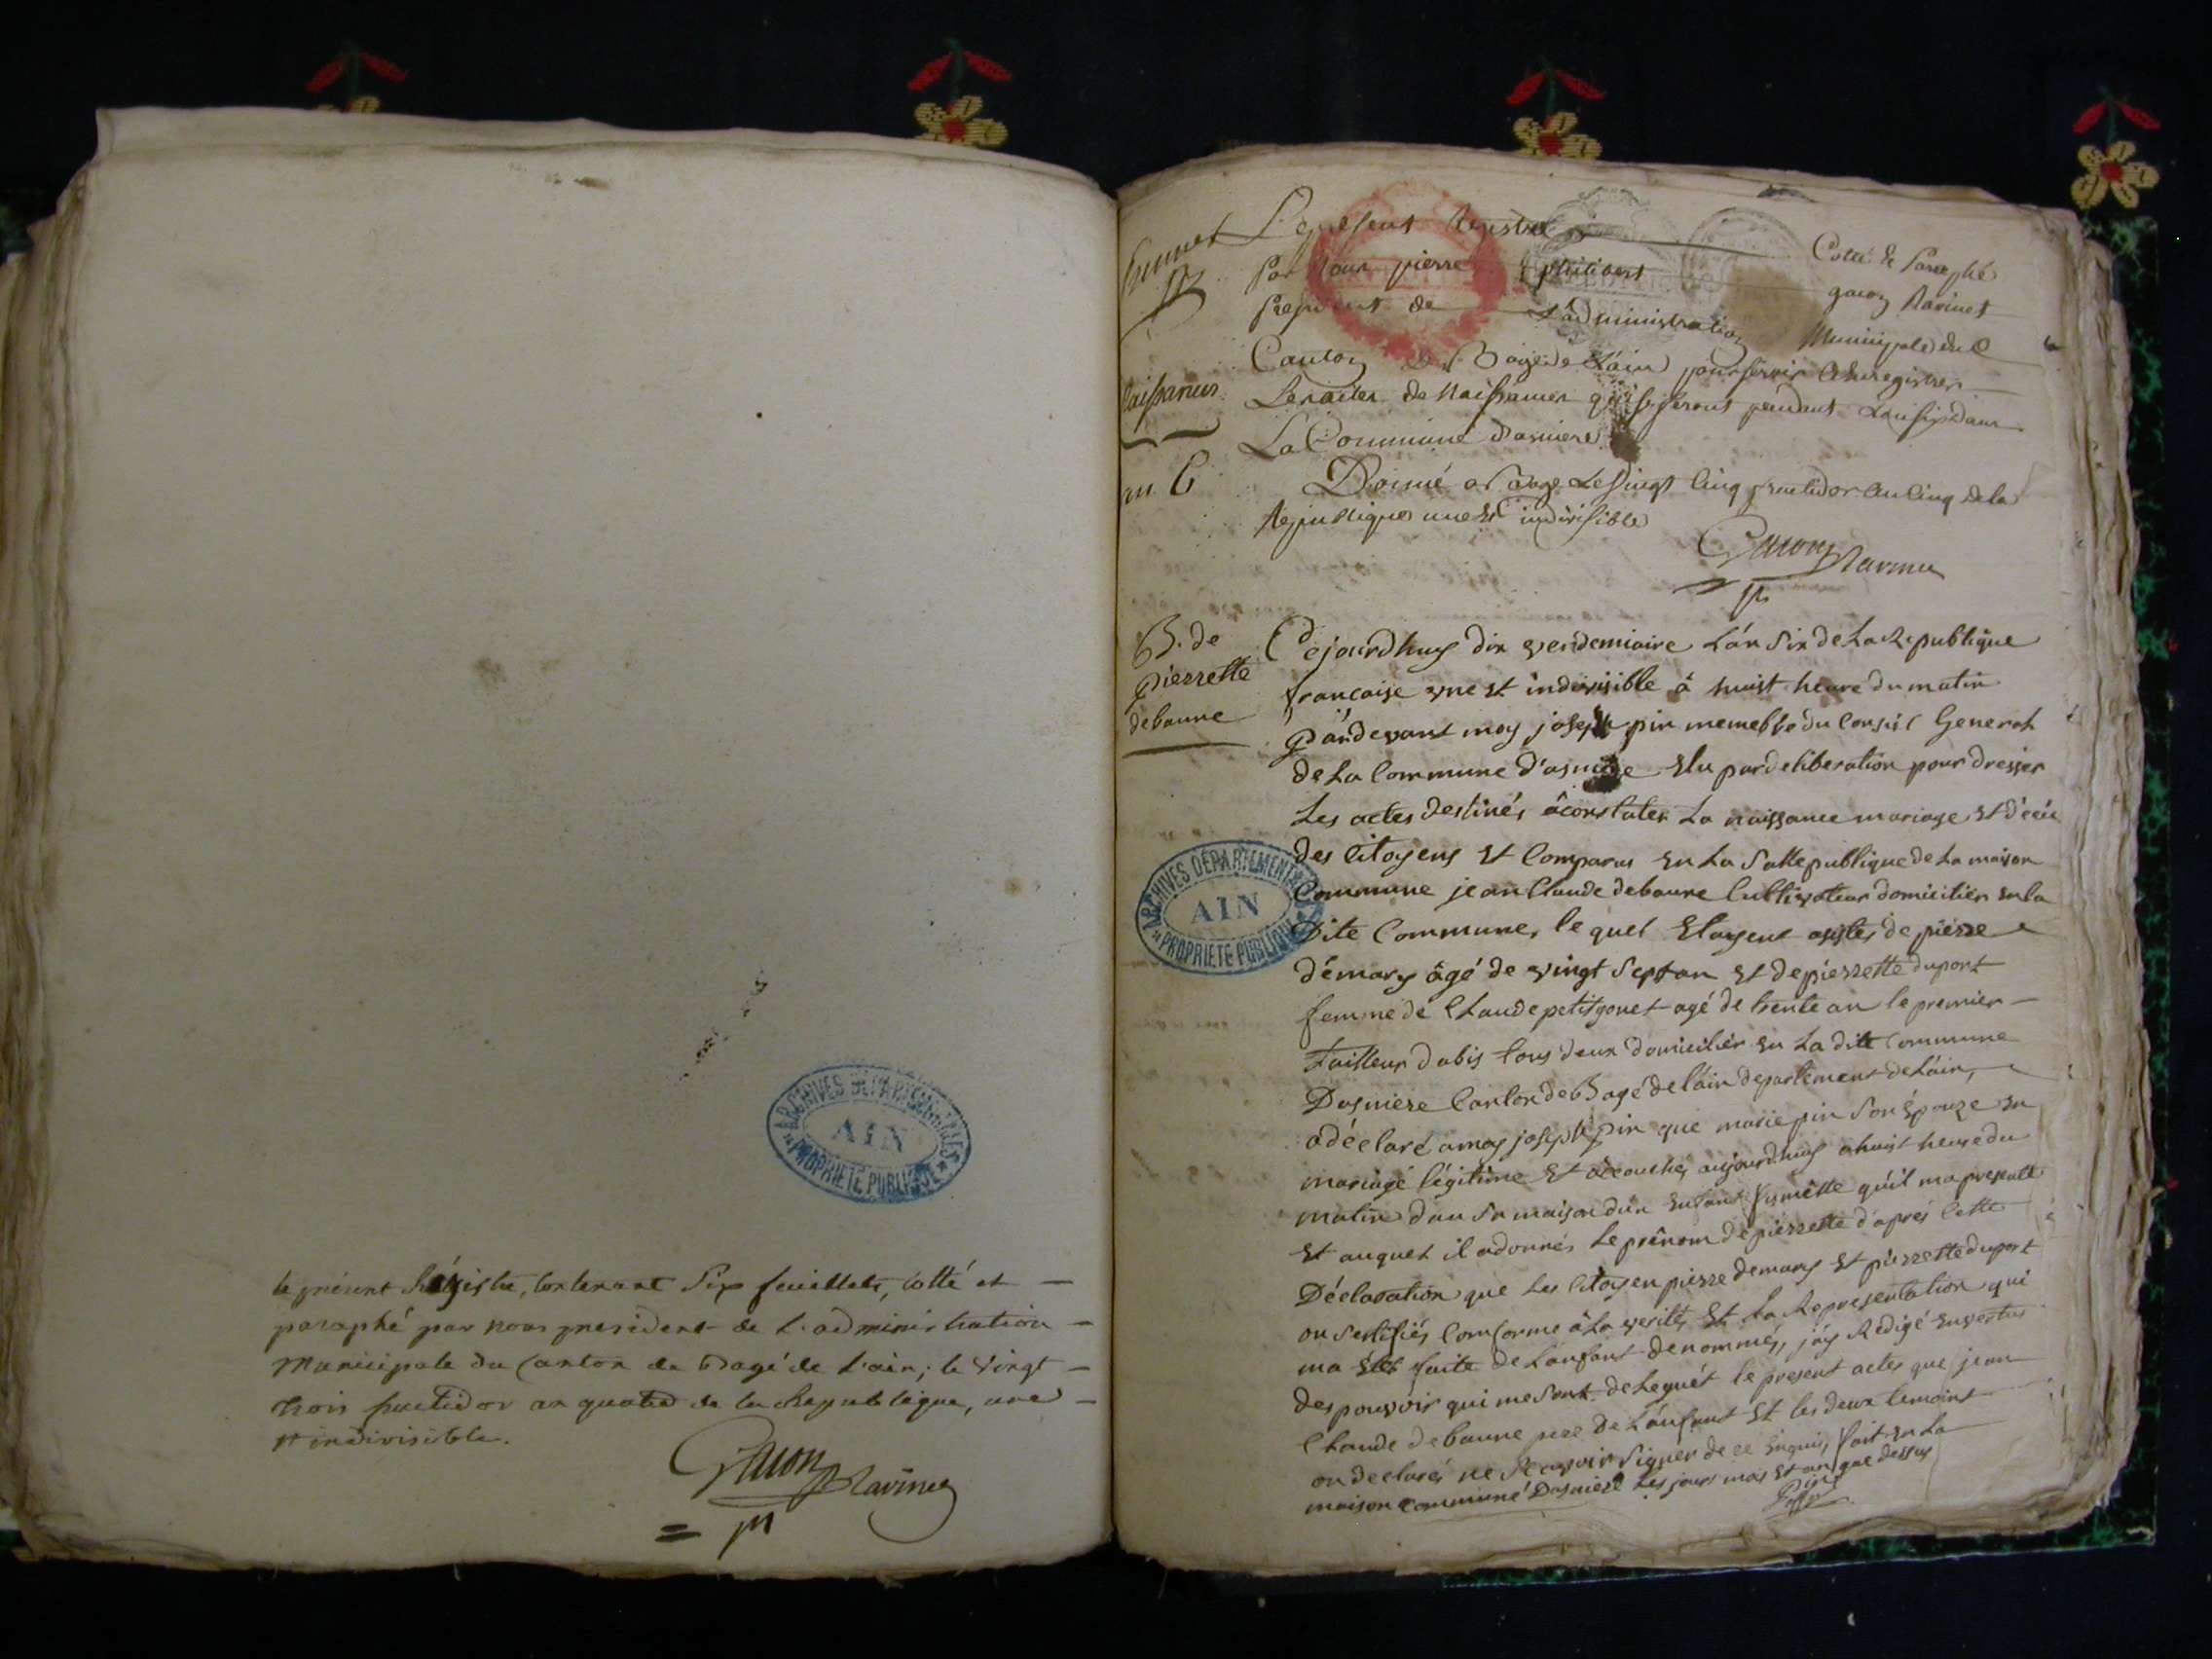 le présent Régistre, contenant Six feuillets, cotté et
paraphé par nous president de L'administration
Municipale du Canton de Bagé de L'ain; le Vingt
trois fructidor an quatre de la Republique, une
et indivisible.
Gacon Ravinet
ARCHIVES DEPARTEMENTALES
AIN
PROPRIETE PUBLIQUE
Le present Registre Cotté & Paraphé
Par Nous pierre philibert gacon Ravinet
President de L'administration Municipale du
Canton de Bagé de L'ain pour servir a Enregistrer
Les actes de Naissances qui se feront pendant L'an six dans
La Commune d'asniere
Donné a Bagé Le Vingt Cinq fructidor an Cinq de la
Republique une et indivisible
Gacon Ravinet
Naissances
an 6
B. de
pierrette
debaune
Cejourdhuy dix vendemiaire L'an Six de La Republique
francaise une et indivisible à huist heure du matin
Pardevant moy joseph pin memebbe du Conseil General
de La Commune d'asniere Elu par deliberation pour dresser
Les actes destinés à constater La naissance mariage et décéé
des Citoyens Et Comparus En La Salle publique de La maison
Commune jean Claude debaune Cultivateur domicilier en la
Dite Commune, le quel Etoyent asistés de pierre
démary âgé de vingt Sept an et de pierrette duport
femme de Claude petitgonet agé de trente an le premier
tailleur dabis tous deux domicilier en La dite Commune
Dasniere Canton de Bagé de l'ain departement de L'ain,
a déclaré a moy joseph pin que marie pin Son Epouze en
mariage légitime Et accouchéz aujourdhuy a huist heure du
matin dan Sa maison dun Enfant fumelle qu'il ma presenté
Et auquel il a donnés Le prênom de pierrette d'aprés Cette
Déclaration que Les Citoyen pierre demary Et pierrette duport
on Sertifiés Comforme à La verités Et La Representation qui
ma Eté faite de L'anfant denommés, j'ay Redigé En vertus
des pouvoir qui me Sont delegués le present actes que jean
Claude debaune pere de L'anfant Et les deux temoint
on declarés ne Scavoir Signer de ce Enquis, fait en La
maison commune Dasniere Les jour mois Et an que dessus
Pin
ARCHIVES DÉPARTEMENTALES
AIN
PROPRIETE PUBLIQUE